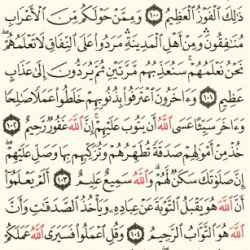 ذَٰلِكَ الْفَوْزُ الْعَظِيمُ ١٠٠ وَمِمَّنْ حَوْلَكُم مِّنَ الْأَعْرَابِ
مُنَافِقُونَ وَمِنْ أَهْلِ الْمَدِينَةِ مَرَدُوا عَلَى النِّفَاقِ لَا تَعْلَمُهُمْ
نَحْنُ نَعْلَمُهُمْ سَنُعَذِّبُهُم مَّرَّتَيْنِ ثُمَّ يُرَدُّونَ إِلَىٰ عَذَابٍ
عَظِيمٍ ١٠١ وَآخَرُونَ اعْتَرَفُوا بِذُنُوبِهِمْ خَلَطُوا عَمَلًا صَالِحًا
وَآخَرَ سَيِّئًا عَسَى اللَّهُ أَن يَتُوبَ عَلَيْهِمْ إِنَّ اللَّهَ غَفُورٌ رَّحِيمٌ ١٠٢
خُذْ مِنْ أَمْوَالِهِمْ صَدَقَةً تُطَهِّرُهُمْ وَتُزَكِّيهِم بِهَا وَصَلِّ عَلَيْهِمْ
إِنَّ صَلَاتَكَ سَكَنٌ لَّهُمْ وَاللَّهُ سَمِيعٌ عَلِيمٌ ١٠٣ أَلَمْ يَعْلَمُوا
أَنَّ اللَّهَ هُوَ يَقْبَلُ التَّوْبَةَ عَنْ عِبَادِهِ وَيَأْخُذُ الصَّدَقَاتِ وَأَنَّ
اللَّهَ هُوَ التَّوَّابُ الرَّحِيمُ ١٠٤ وَقُلِ اعْمَلُوا فَسَيَرَى اللَّهُ عَمَلَكُمْ